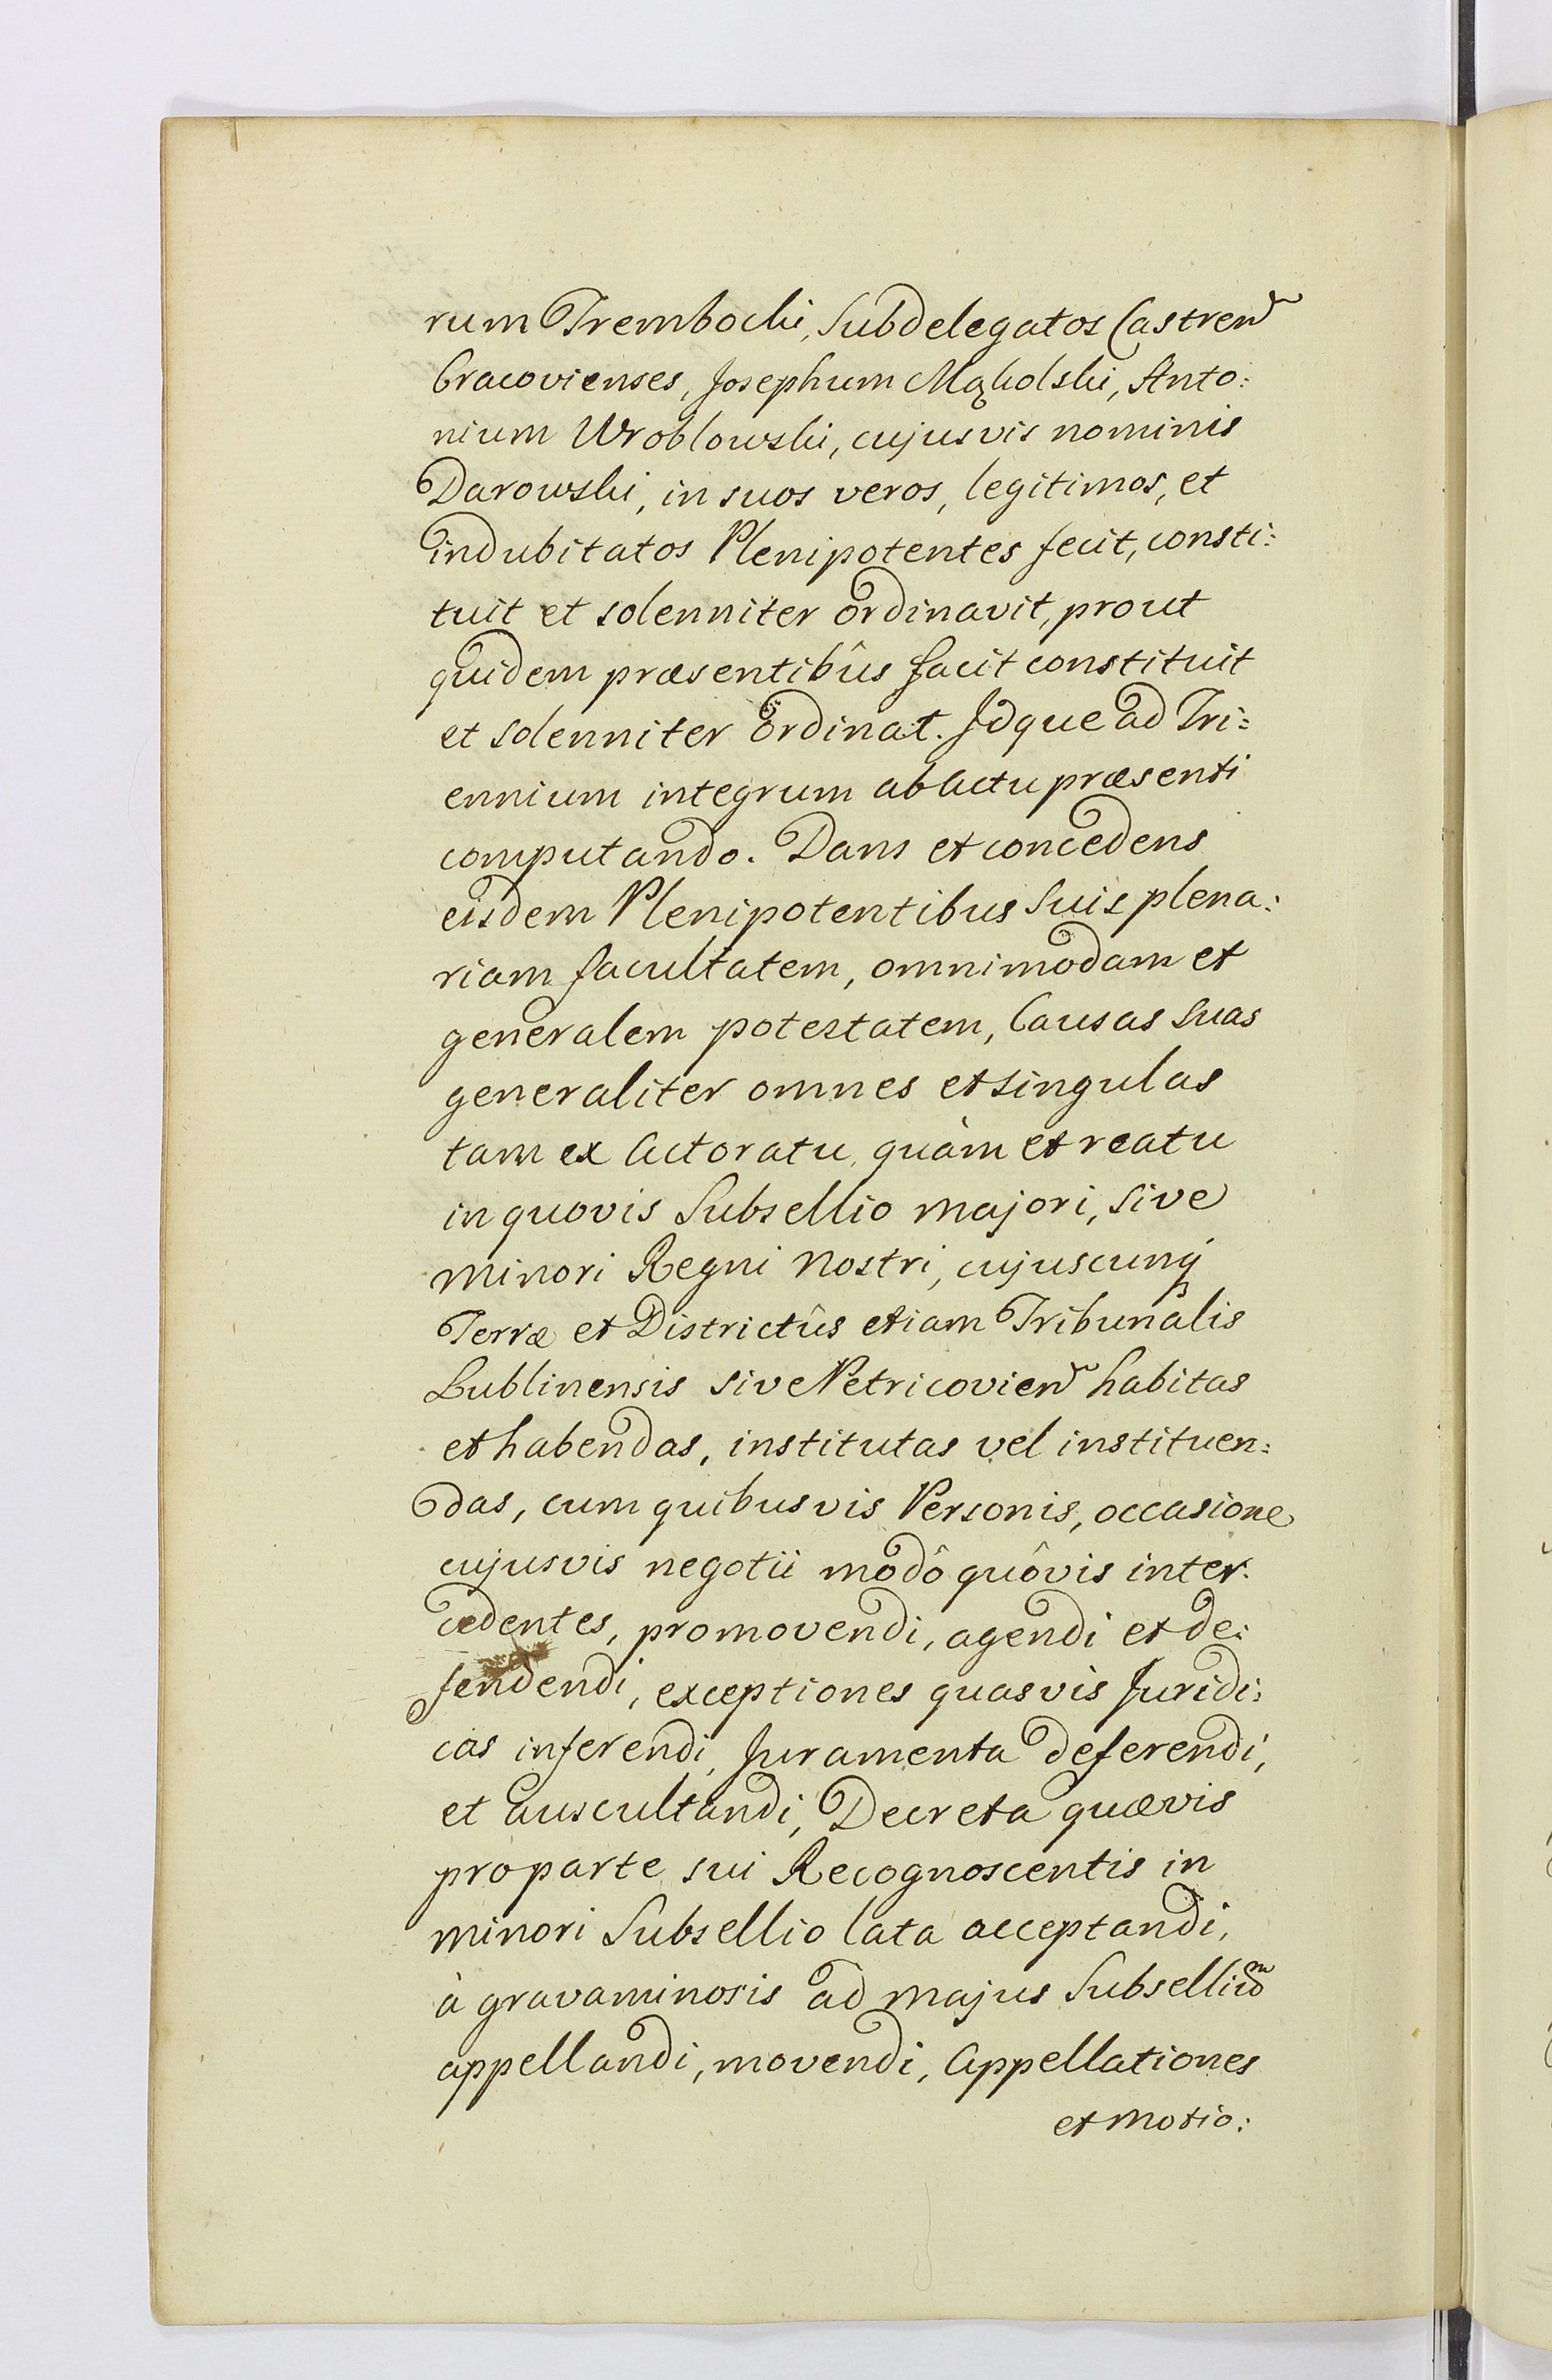 rum Trembocki, Subdelegatos Castren̄
Cracovienses, Josephum Mąkolski, Anto:
nium Wroblowski, cujusvis nominis
Darowski, in suos veros, legitimos, et
indubitatos Plenipotentes fecit, consti:
tuit et solenniter ordinavit, prout
quidem præsentibûs facit constituit
et solenniter ordinat. Idque ad Tri:
ennium integrum ab Actu præsenti
computando. Dans et concedens
eisdem Plenipotentibus Suis plena:
riam facultatem, omnimodam et
generalem potestatem, Causas Suas
generaliter omnes et singulas
tam ex Actoratu, quàm et reatu
in quovis Subsellio majori, sive
minori Regni Nostri, cujuscunq́
Terræ et Districtûs etiam Tribunalis
Lublinensis sive Petricovien̄ habitas
et habendas, institutas vel instituen:
das, cum quibusvis Personis, occasione
cujusvis negotii modô quôvis inter:
cedentes, promovendi, agendi et de:
fendendi, exceptiones quasvis Juridi:
cas inferendi, Juramenta deferendi,
et auscultandi, Decreta quævis
pro parte sui Recognoscentis in
minori Subsellio lata acceptandi,
à gravaminosis ad majus Subselliũ
appellandi, movendi, Appellationes
et motio: